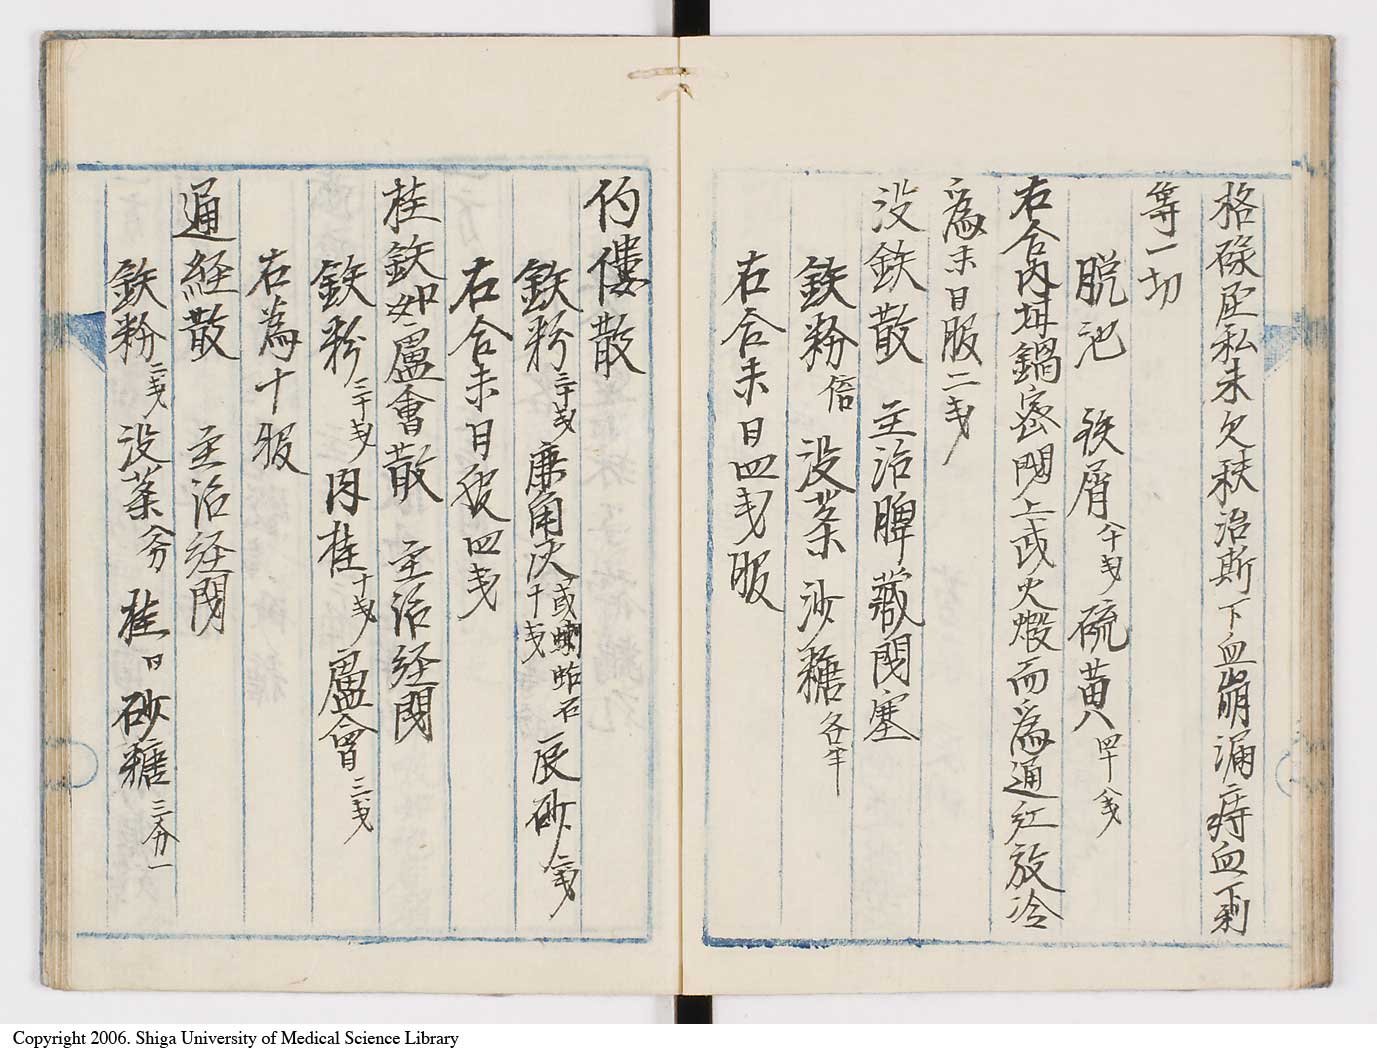 格碌屈私未欠秩治斯下血崩漏痔血下剰
等一切
脱池 鉄屑八十戔硫黄四十八戔
右合内坩鍋密閉上武火煅而為通紅放冷
為末日服二戔
没鉄散 主治脾蔵閉塞
鉄粉倍 没薬 沙糖各半
右合末日四戔服
鉄粉三十戔鹿角灰十戔或蜊蛄石辰砂二戔
右合末日服四戔
桂鉄加盧會散 主治経閉
鉄粉三十戔肉桂十戔盧會三戔
右為十服
通経散 主治経閉
鉄粉三戔 没薬分 桂日 砂糖三分一
Copyright 2006. Shiga University of Medical Science Library